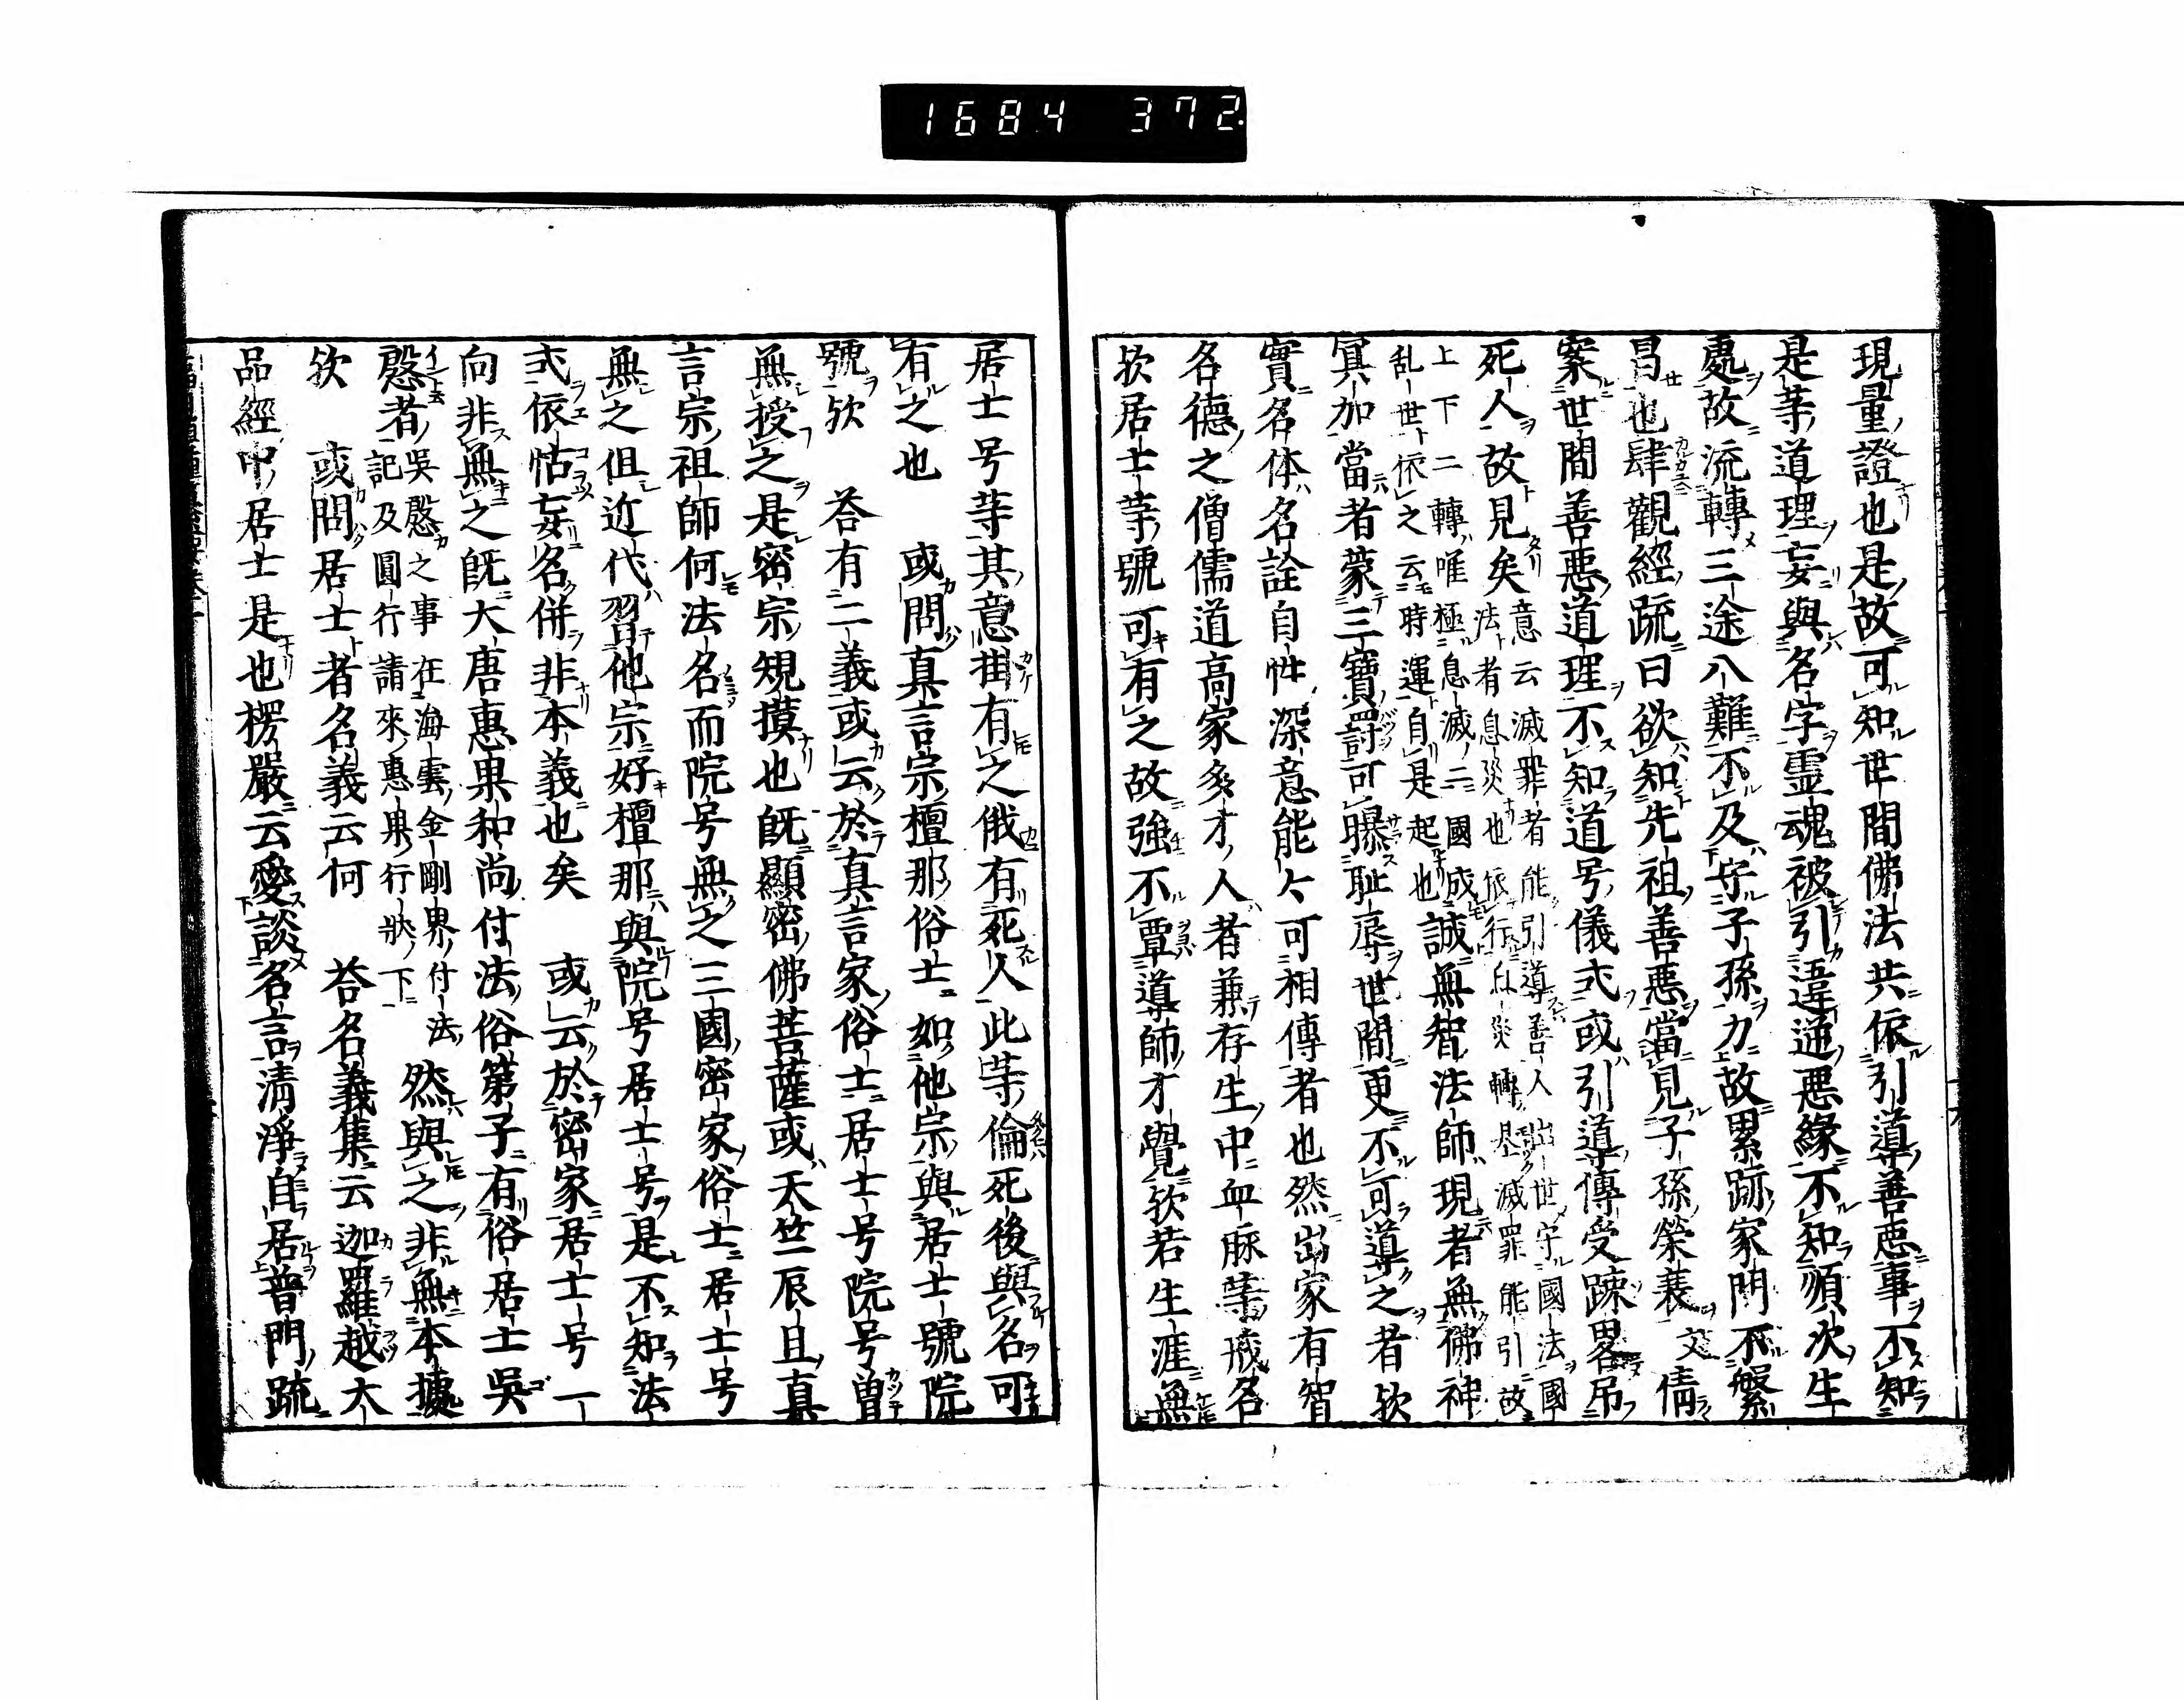 1684 372
現量證也是故可知世間佛法共依引導善惡事不知
是等道理妄與名字靈魂被引違通惡緣不知順次生
處故流轉三途八難不及守子孫力故累跡家門不繁
昌也肆觀經疏曰欲知先祖善惡當見子孫榮衰文倩
案世間善惡道理不知道号儀式或引導傳受踈畧吊
死人故見矣意云滅罪者能引導善人出世守國法國
法者息災也依行息災轉基滅罪能引故
上下二轉唯極息滅二國成誠無智法師現者無佛神
乱世依之云時運自是起也
冥加當者蒙三寶罸可曝耻辱世間更不可導之者欤
實名体名詮自性深意能々可相傳者也然出家有智
名德之僧儒道高家多才人者兼存生中血脈等戒名
欤居士等號可有之故強不覃導師才覺欤若生涯無
居士号等其意掛有之俄有死人此等倫死後與名可
有之也 或問真言宗檀那俗士如他宗與居士號院
號欤 荅有二義或云於真言家俗士居士号院号曽
無授之是密宗規摸也既顯密佛菩薩或天竺辰旦真
言宗祖師何法名而院号無之三國密家俗士居士号
無之但近代習他宗好檀那與院号居士号是不知法
式依怙妄名併非本義也矣 或云於密家居士号一
向非無之既大唐惠果和尚付法俗弟子有俗居士吳
慇者吳慇之事在海雲金剛界付法然與之非無本據
記及圓行請來惠果行狀下
欤 或問居士者名義云何 荅名義集云迦羅越大
品經中居士是也楞嚴云愛談名言清淨自居普門疏